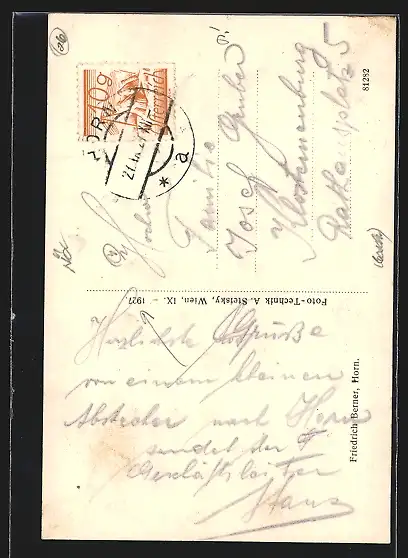 26
10g
Österreich
HORN
* a
Hochw.
Familie
Josef Gruber
Klosterneuburg
Rathausplatz 5
81282
Foto-Technik A. Stefsky, Wien, IX. - 1927
Friedrich Berner, Horn.
Herzlichste Grüße
von einem kleinen
Abstecher nach Horn
sendet der
Geschäftsleiter
Hans